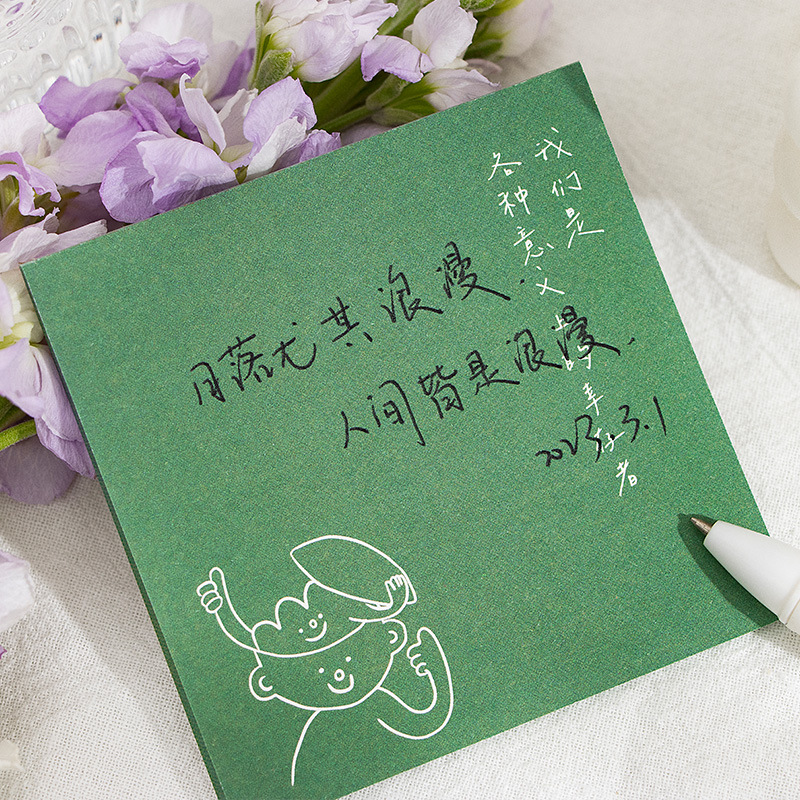 我们是
各种意义上的幸存者
日落尤其浪漫.
人间皆是浪漫.
2023.3.1